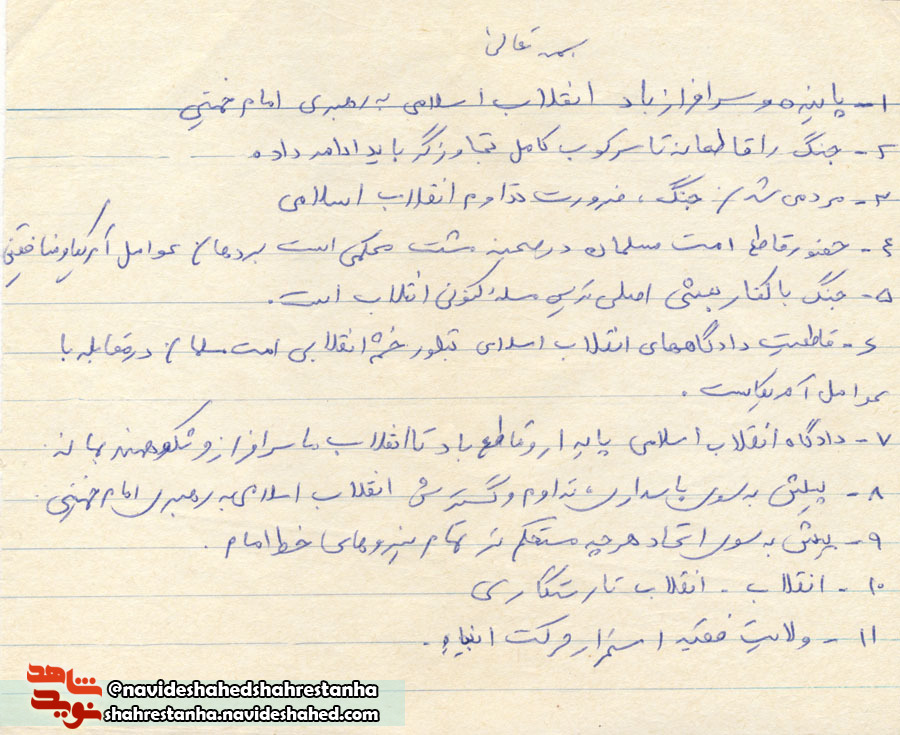 بسمه تعالی
۱- پاینده و سرافراز باد انقلاب اسلامی به رهبری امام خمینی
۲- جنگ را قاطعانه تا سرکوب کامل تجاوزگر باید ادامه داده
۳- مردمی شدن جنگ، ضرورت تداوم انقلاب اسلامی
۴- حضور قاطع امت مسلمان در صحنه مشت محکمی است بر دهان عوامل آمریکا و منافقین
۵- جنگ با کفار بعثی اصلی ترین مسئله کنونی انقلاب است.
۶- قاطعیت دادگاههای انقلاب اسلامی تبلور خشم انقلابی امت مسلمان در مقابله با
عوامل آمریکاست.
۷- دادگاه انقلاب اسلامی پایدار و قاطع باد تا انقلاب ما سرافراز و شکوهمند بماند
۸- پیش به سوی پاسداری، تداوم و گسترش انقلاب اسلامی به رهبری امام خمینی.
۹- پیش به سوی اتحاد هرچه مستحکم تر تمام نیروهای خط امام.
۱۰- انقلاب - انقلاب تا رستگاری
۱۱- ولایت فقیه استمرار حرکت انبیاء.
شاهد
نوید
@navideshahedshahrestanha
shahrestanha.navideshahed.com